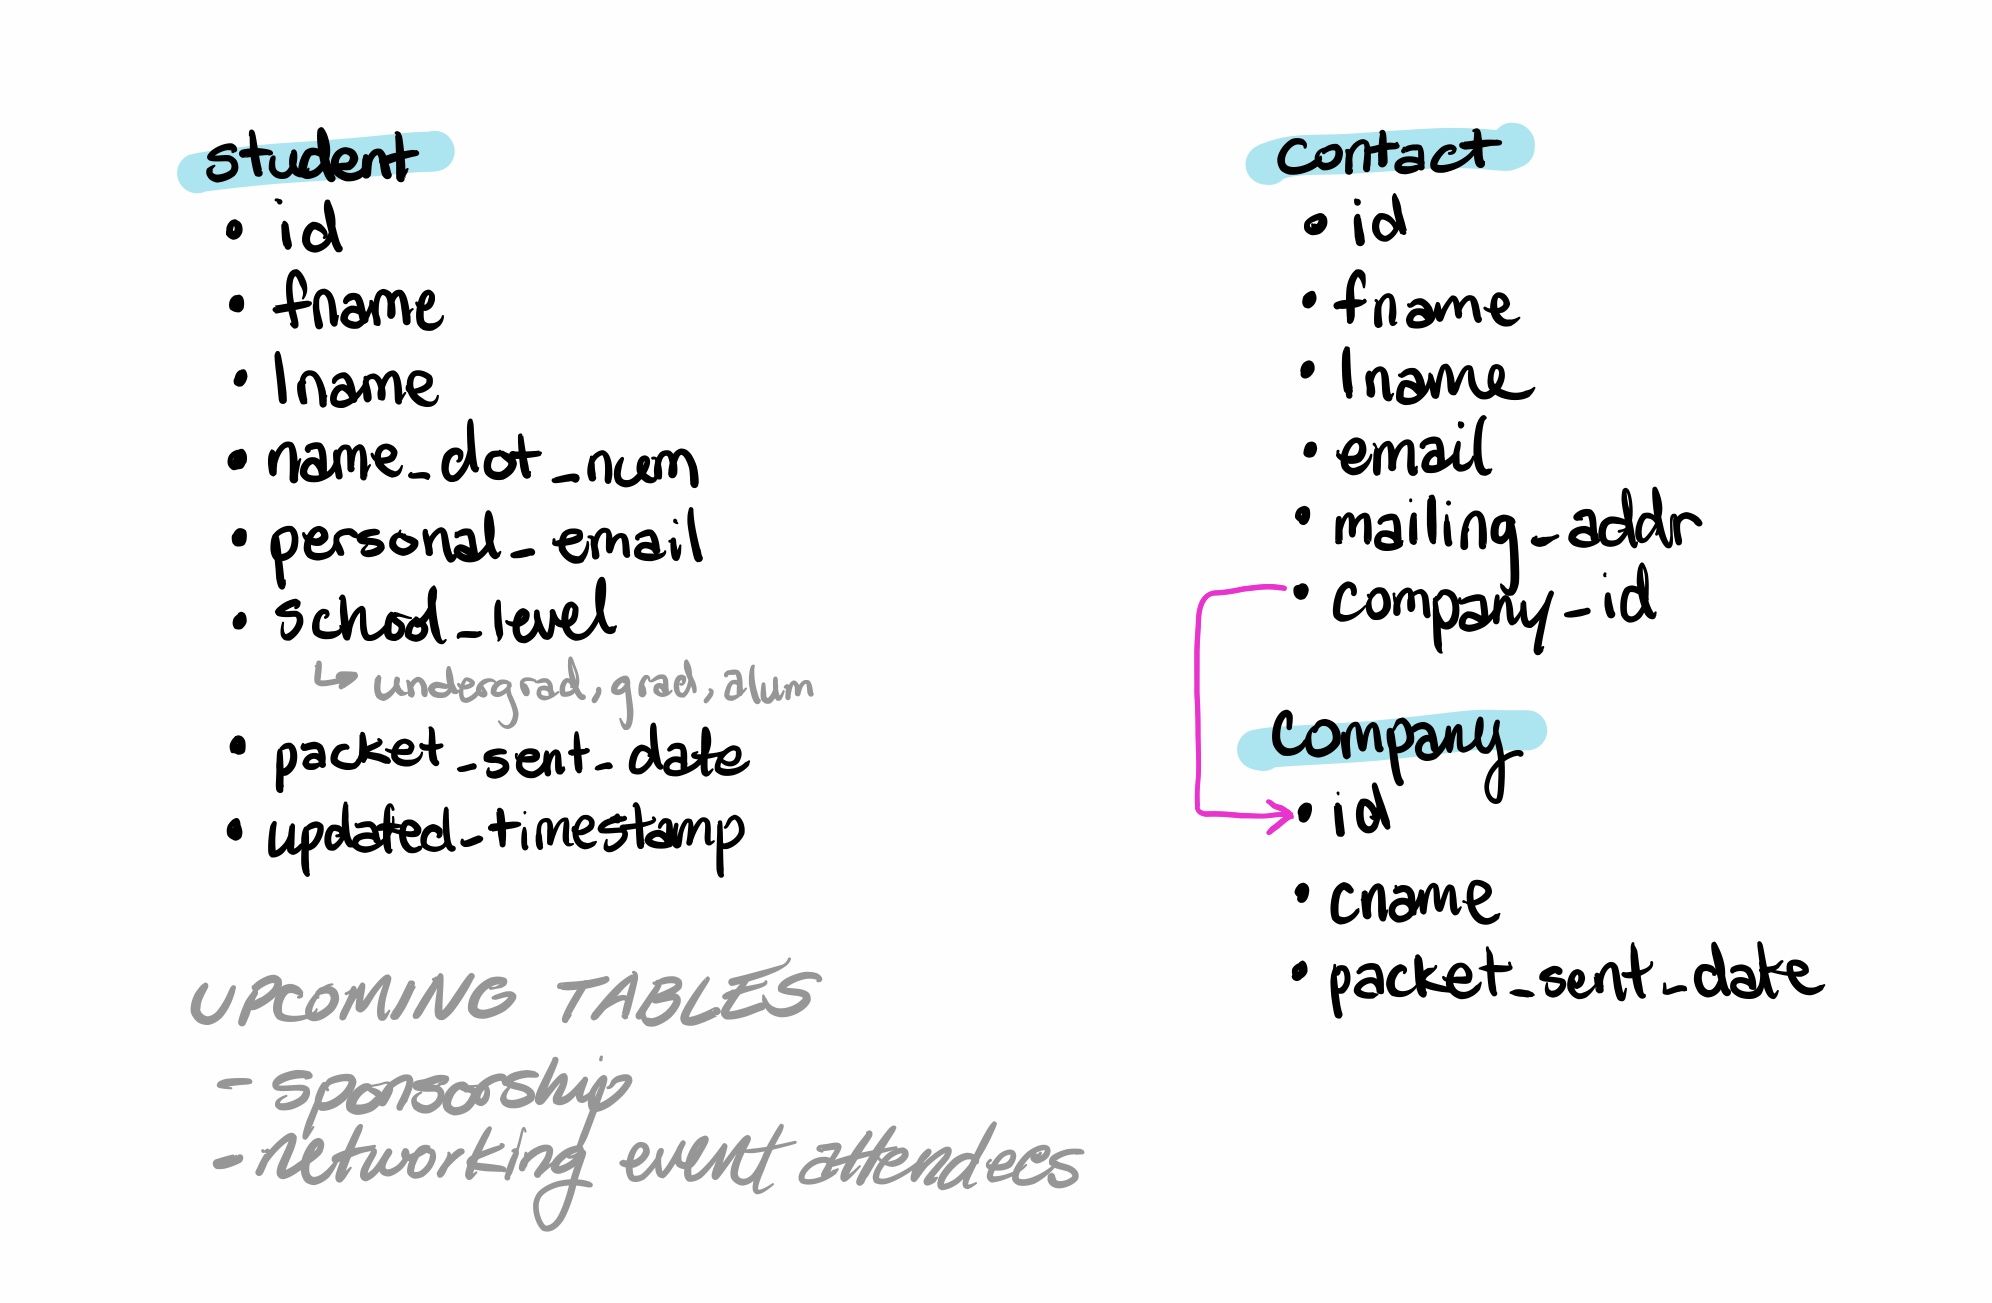 student
• id
• fname
• lname
• name_dot_num
• personal_email
• school_level
↳ undergrad, grad, alum
• packet_sent_date
• updated_timestamp
UPCOMING TABLES
- sponsorship
- networking event attendees
contact
• id
• fname
• lname
• email
• mailing_addr
• company_id
company
• id
• cname
• packet_sent_date